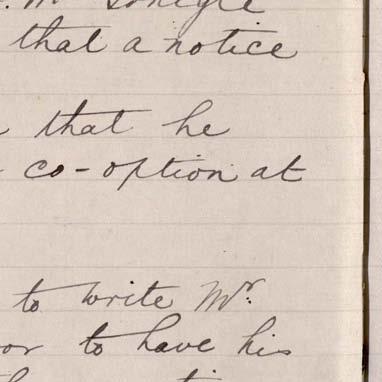 that a notice
that he
co-option at
to write Mr.
to have his